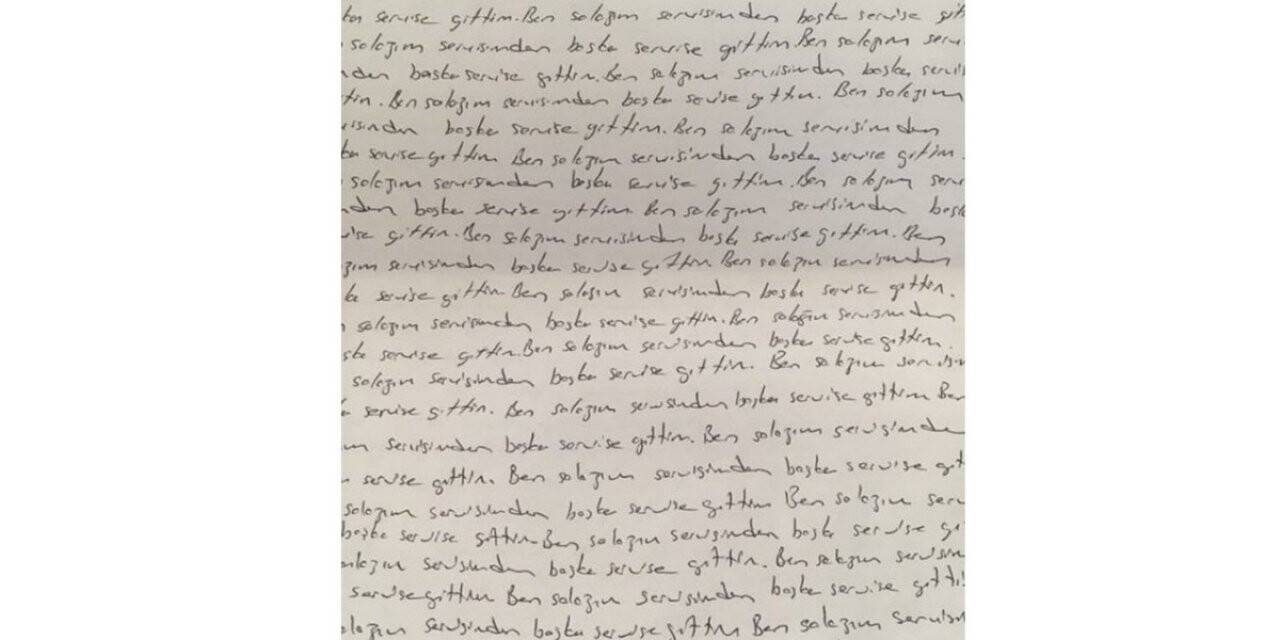 ka servise gittim. Ben salağım servisinden başka servise git
salağım servisinden başka servise gittim Ben salağım serv
nden başka servise gittim. Ben salağım servisinden başka servis
tim. Ben salağım servisinden başka servise gittim. Ben salağım
visinden başka servise gittim. Ben salağım servisinden
ka servise gittim Ben salağım servisinden başka servise gittim.
salağım servisinden başka servise gittim. Ben salağım serv
nden başka servise gittim Ben salağım servisinden başk
vise gittim. Ben salağım servisinden başka servise gittim. Ben
ğım servisinden başka servise gittim. Ben salağım servisinden
ka servise gittim Ben salağım servisinden başka servise gittim.
salağım servisinden başka servise gittim. Ben salağım servisinden
şka servise gittim. Ben salağım servisinden başka servise gittim.
salağım servisinden başka servise gittim. Ben salağım servisin
servise gittim. Ben salağım servisinden başka servise gittim Ben
m servisinden başka servise gittim. Ben salağım servisinde
servise gittim. Ben salağım servisinden başka servise git
salağım servisinden başka servise gittim Ben salağım serv
başka servise gittim. Ben salağım servisinden başka servise gi
alağım servisinden başka servise gittim. Ben salağım servisin
servise gittim Ben salağım servisinden başka servise gitti
alağım servisinden başka servise gittim Ben salağım servisin